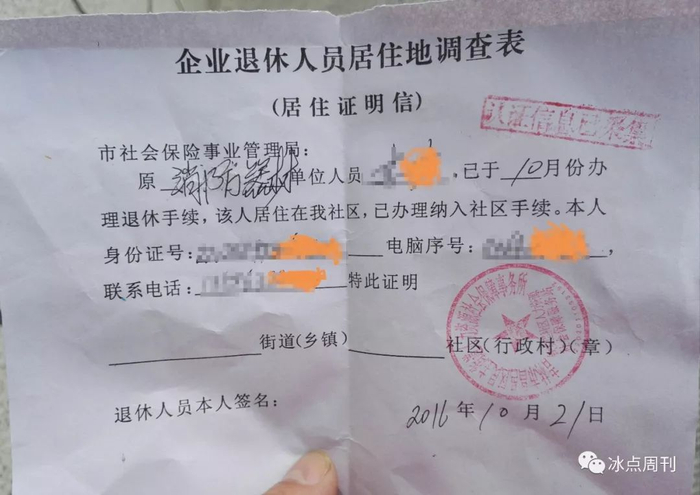 企业退休人员居住地调查表
(居住证明信)
认证信息已采集
市社会保险事业管理局:
原 消防器材 单位人员 ,已于 10 月份办
理退休手续,该人居住在我社区,已办理纳入社区手续。本人
身份证号: 电脑序号: ,
联系电话: 特此证明
街道(乡镇) 社区(行政村)(章)
退休人员本人签名:
2016 年 10 月 21 日
冰点周刊